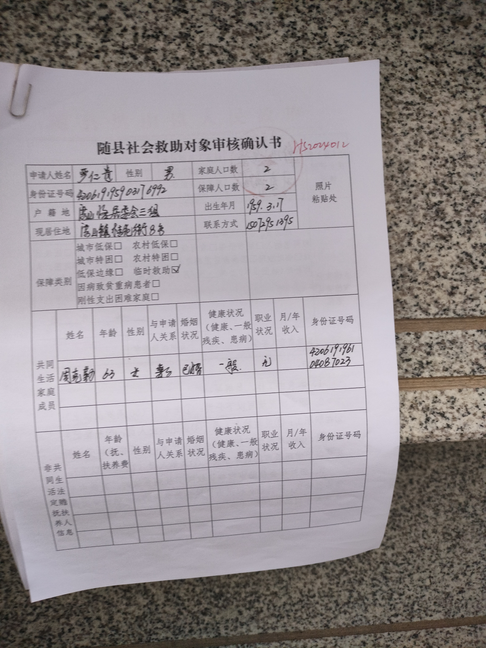 随县社会救助对象审核确认书
HS2024012
申请人姓名 性别 男 家庭人口数 2
身份证号码 420619195903176992 保障人口数 2
照片
粘贴处
户 籍 地 出生年月 1959.3.17
现居住地 联系方式
保障类别
城市低保□ 农村低保□
城市特困□ 农村特困□
低保边缘□ 临时救助☑
因病致贫重病患者□
刚性支出困难家庭□
共同生活家庭成员
姓名 年龄 性别 与申请人关系 婚姻状况 健康状况（健康、一般残疾、患病） 职业状况 月/年收入 身份证号码
63 女 妻子 已婚 一般 无 4206191961
04087023
非共同生活法定赡抚扶养人信息
姓名 年龄（抚、扶养费） 性别 与申请人关系 婚姻状况 健康状况（健康、一般残疾、患病） 职业状况 月/年收入 身份证号码